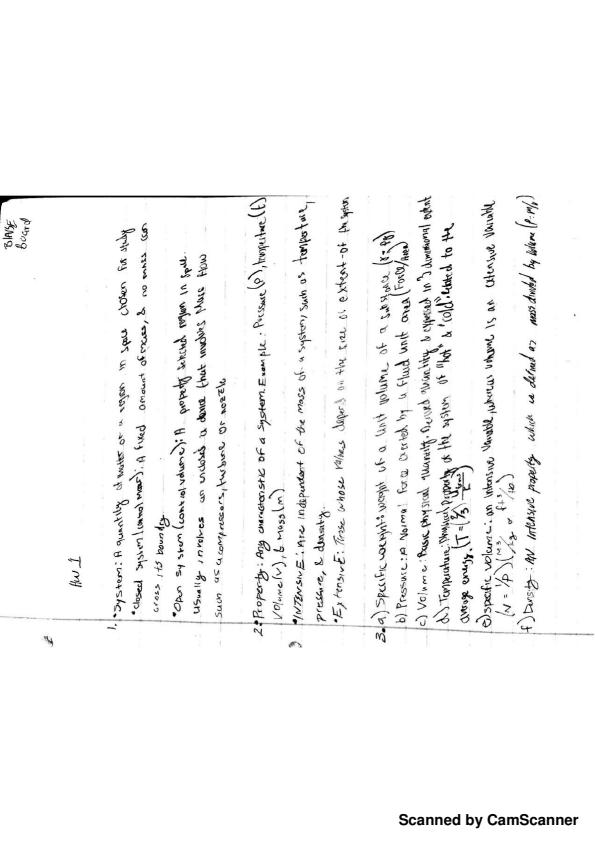 BlAISE
Board
HW 1
1. • System: A quantity of matter or a region in space chosen for study
• closed system (control mass): A fixed amount of mass, & no mass can
cross its boundry
• Open system (control volume): A properly selected region in space.
Usually involves an enclosed a device that involves Mass flow
such as a compressors, turbine or nozzle
2. • Property: Any characteristic of a system. Example: Pressure (P), temperature (t)
Volume (v), & Mass (m)
• INTENSIVE: Are independent of the mass of a system, such as temperature,
pressure, & density.
• ExtensivE: Those whose values depend on the size or extent of the system
3. a) Specific weight: weight of a unit volume of a substance
b) Pressure: A Normal Force exerted by a fluid unit area (Force/Area)
c) Volume: physical quantity. Derived quantity & expressed in 3 dimensional extent
d) Temperature: Physical Property of the system of "hot" & "cold". Related to the
average energy.
e) specific volume: an intensive Variable, whereas volume is an extensive Variable
(V = 1/ρ) (m³/kg or ft³/lb)
f) Density: AN Intensive property which is defined as mass divided by volume
Scanned by CamScanner